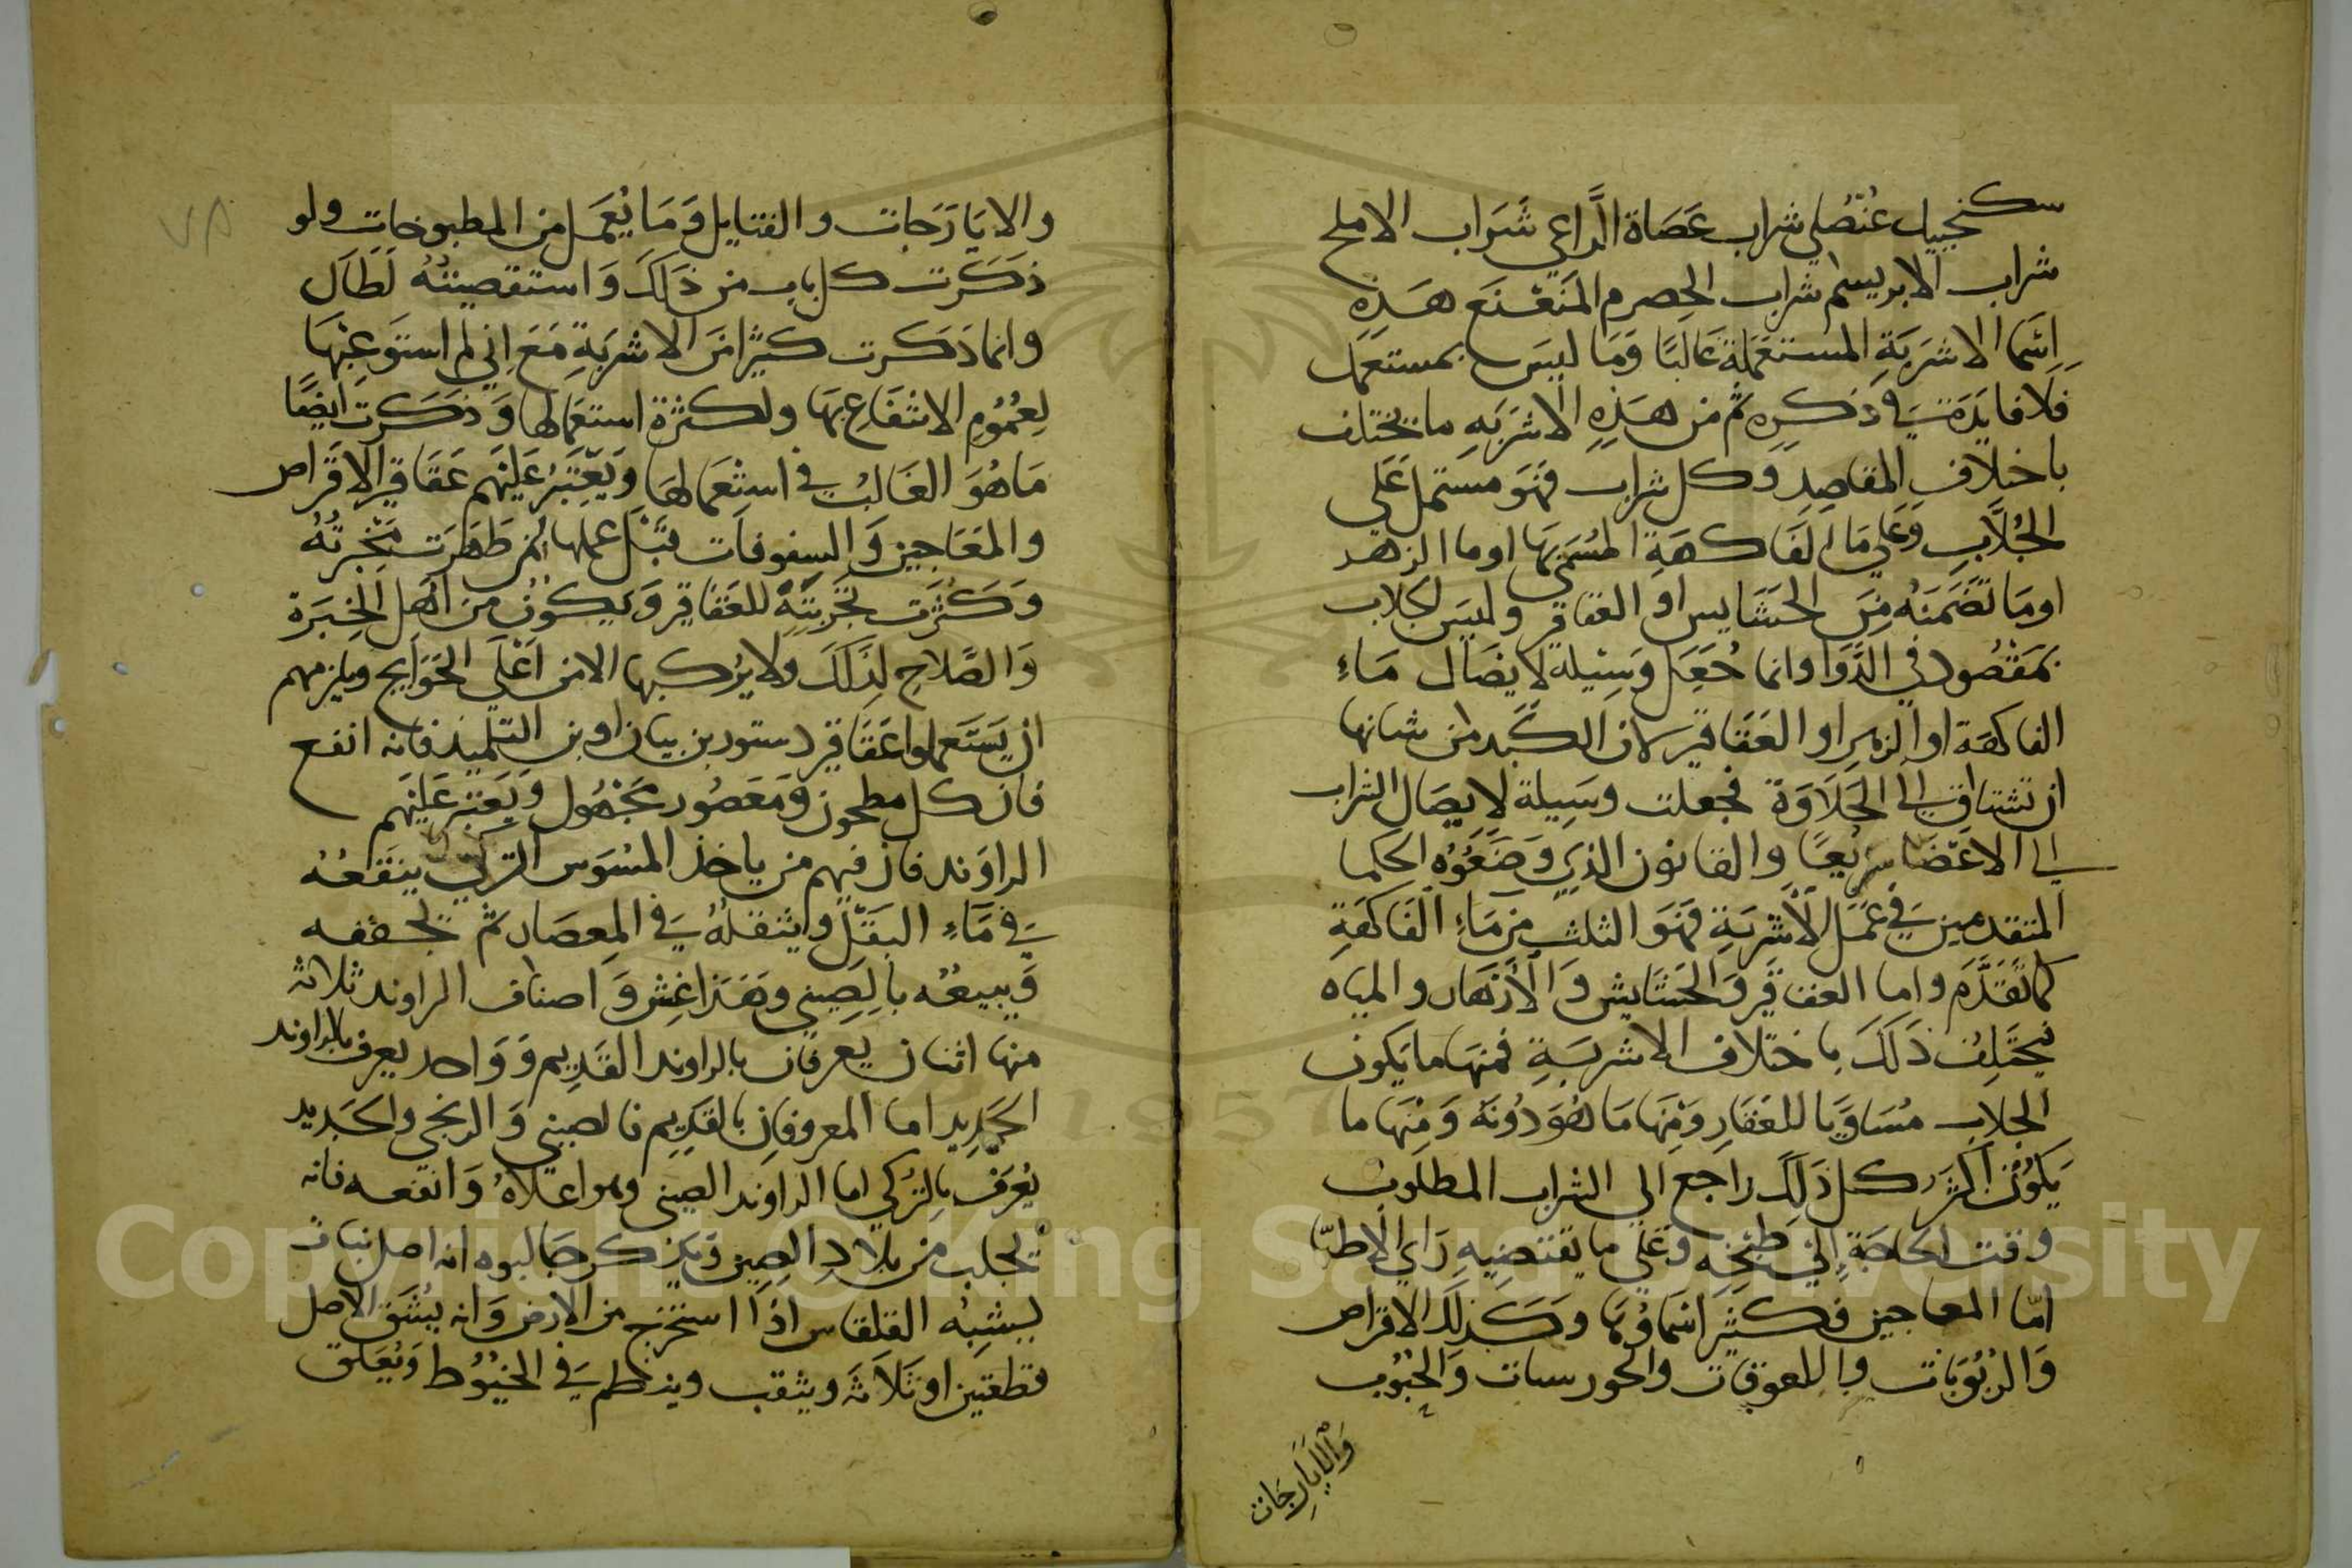 سكنجبيل عُنْصُلي شراب عَصَاة الرَّاعي شَرَاب الاملح
شراب الابريسم شراب الحِصرم المنَعْنَع هَذِهِ
اِسَما الاشرَبَةِ المستعمَلة غالبًا وَمَا ليسَ بمستعمَل
فَلا فايدَة في ذكِرِه ثم من هَذِهِ الاشرَبَهِ ما يختلف
باختلاف المقاصِدِ وَكل شراب فهَو مشتمل عَلَى
الجُلَّابِ وَعَلى مَا الفَاكهَةِ المسُمَى بهَا اوما الزهر
اومَا تضَمَنَهُ مِنَ الحشَايس او العقاقر وليسَ الجلاب
بمَقصُود في الدَّوَا وانما جُعِل وَسِيْلة لايصَال مَاءِ
الفاكهَة او الزهرِ او العَقَاقير لان الكبَد من شانها
ان تشتاق الى الحَلَاوَة فجعلت وسَيِلة لايصَال الشراب
الى الاعضَا سرْيعًا والقانون الذي وَضَعُوُه الحكما
المتقدمين في عَمَل الأشرَبَةِ فهَوَ الثلث مِن مَاءِ الفَاكهَةِ
كما تقَدَّمَ واما العقاقَير وَالحَشَايش وَالأَزهَار والمياه
فيَختَلِفُ ذَلكَ باختلاف الاشربَةِ فمنهَا ما يَكون
الجلاب مُسَاوَيا للعَقارِ وَمْنِهَا مَا هُوَ دُونَة وَمِنْهَا ما
يَكوُن اكثرَ كل ذَلِكَ راجع الى الشراب المطلوب
وقت الحاجَةِ الىَ طبْخِهِ وَعَلى ما يقتضِيهِ رَاي الاطبّا
امّا المعاجين فكثير اسَماوُهَا وَكَذلَك الاقراص
وَالرُبُوَبَات واللعوقات والجورسات وَالحُبُوب
وَالاَيَارِجَات
٧٨
والايَارَجات والفتايل وَمَا يُعمَل من المطبوخات ولو
ذكَرَت كل باب من ذَلكَ وَاستقصيتُهُ لَطَالَ
وانما ذكرت كثيًرا منَ الاشربَةِ مَعَ اِني لم استَوعِبْهَا
لِعُمُوُمِ الانتفَاع بهَا ولكثرَة استعمالها وَذكَرت ايضًا
مَا هُوَ الغَالبُ في استِعمَالها وَيَعْتَبُر عَليْهم عَقَاقِير الاقَراص
والمعَاجِين وَالسفوفَات قَبْل عملها لمن ظهَرت مَخْبرتُهُ
وَكثرَت تجَربتَهُ للعَقاقر وَيَكوُن من اهَل الخِبَرة
وَالصَّلاحِ لِذَلكَ ولا يُركبها الامن اَعْلَى الحَوَايج ويلزمهم
ان يَستَعملوا عَقَاقير دستور بن بيان او بن التلميذ فانه انفع
فان كل مطحون وَمَعصُور مجَهُول وَيعَتبر عَليَهم
الراوَند فان فيهم من ياخذ المسُوَس التركي ينقَعُهُ
في مَآءِ البَقَل ويثقلهُ في المِعصَار ثم يجففه
وَيبيعُه بالِصيني وهَذا غِش وَاصناف الراوند ثلاثه
منها اثنان يعرفان بالراوند القَدِيم وَوَاحد يعرف بالراوند
الجَدِيد اما المعروفان بالقدِيِم فالصيني وَالزنجي والجَديد
يُعرَف بِالتُركي اما الراوَند الصيني وهوا علاهُ وَانفعه فانه
يجلب من بلادِ الصِين وَيذكر جَالبوه انه اصل نبات
يشبُه القلقاس اذَا استخرج من الارض وَانه يُشَق الاصل
قطعتين او ثَلَاثه ويثقب وينظم في الخيُوُط وَيُعَلق